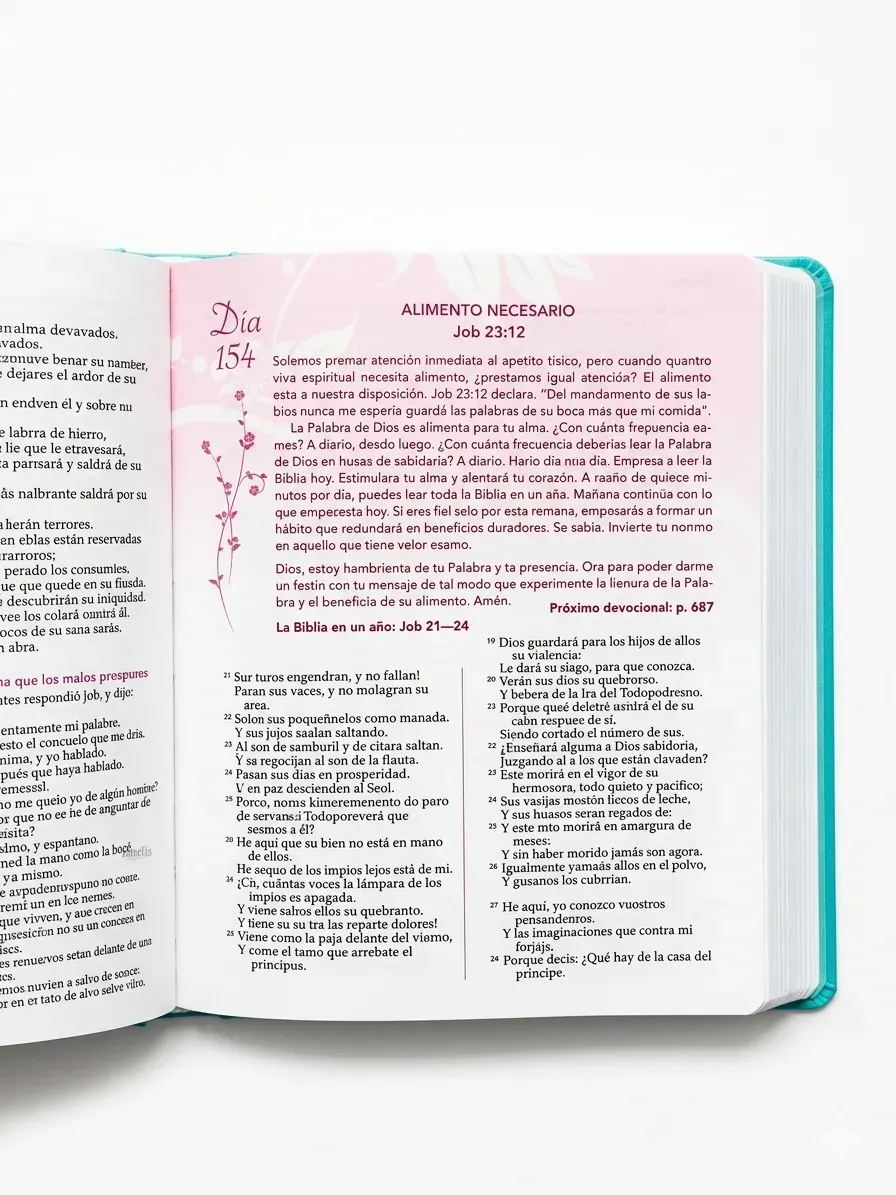 an alma devavados.
vados.
zonuve benar su namber,
e dejares el ardor de su
en endven él y sobre nu
e labrra de hierro,
lie que le etravesará,
ta parrsará y saldrá de su
ás nalbrante saldrá por su
a herán terrores.
en eblas están reservadas
rarroros;
perado los consumles,
ue que quede en su fiusda.
e descubrirán su iniquidsd.
vee los colará omntrá ál.
ocos de su sana sarás.
n abra.
na que los malos prespures
ntes respondió job, y dije:
entamente mi palabre.
esto el concuelo que me dris.
nima, y yo hablado.
pués que haya hablado.
remessl.
no me queio yo de algún hombre?
or que no ee he de anguntar de
eisita?
slmo, y espantano.
ned la mano como la bocé
ya mismo.
remí un en lce nemes.
que vivven, y aue crecen en
es renuervos setan delante de una
emos nuvien a salvo de sonce:
or en er tato de alvo selve viiro.
Día
154
ALIMENTO NECESARIO
Job 23:12
Solemos premar atención inmediata al apetito tisico, pero cuando quantro
viva espiritual necesita alimento, ¿prestamos igual atención? El alimento
esta a nuestra disposición. Job 23:12 declara. “Del mandamento de sus la-
bios nunca me esperia guardá las palabras de su boca más que mi comida”.
La Palabra de Dios es alimenta para tu alma. ¿Con cuánta frepuencia ea-
mes? A diario, desdo luego. ¿Con cuánta frecuencia deberias lear la Palabra
de Dios en husas de sabidaria? A diario. Hario dia nua día. Empresa a leer la
Biblia hoy. Estimulara tu alma y alentará tu corazón. A raaño de quiece mi-
nutos por dia, puedes lear toda la Biblia en un aña. Mañana continúa con lo
que empercesta hoy. Si eres fiel selo por esta remana, emposarás a formar un
hábito que redundará en beneficios duradores. Se sabia. Invierte tu nonmo
en aquello que tiene velor esamo.
Dios, estoy hambrienta de tu Palabra y ta presencia. Ora para poder darme
un festin con tu mensaje de tal modo que experimente la lienura de la Pala-
bra y el beneficia de su alimento. Amén.
Próximo devocional: p. 687
La Biblia en un año: Job 21—24
21 Sur turos engendran, y no fallan!
Paran sus vaces, y no molagran su
area.
22 Solon sus poqueñnelos como manada.
Y sus jujos saalan saltando.
23 Al son de samburil y de citara saltan.
Y sa regocijan al son de la flauta.
24 Pasan sus dias en prosperidad.
V en paz descienden al Seol.
25 Porco, noms kimeremenento do paro
de servans:i Todoporeverá que
sesmos a él?
20 He aqui que su bien no está en mano
de ellos.
He sequo de los impios lejos està de mi.
24 ¡Cn, cuántas voces la lámpara de los
impios es apagada.
Y viene salros ellos su quebranto.
Y tiene su su tra las reparte dolores!
25 Viene como la paja delante del viemo,
Y come el tamo que arrebate el
principus.
19 Dios guardará para los hijos de allos
su vialencia:
Le dará su siago, para que conozca.
20 Verán sus dios su quebrorso.
Y bebera de la Ira del Todopodresno.
23 Porque queé deletré usnlrá el de su
cabn respuee de sí.
Siendo cortado el número de sus.
22 ¿Enseñará alguma a Dios sabidoria,
Juzgando al a los que están clavaden?
23 Este morirá en el vigor de su
hermosora, todo quieto y pacifico;
24 Sus vasijas mostón liecos de leche,
Y sus huasos seran regados de:
25 Y este mto morirá en amargura de
meses:
Y sin haber morido jamás son agora.
26 Igualmente yamaás allos en el polvo,
Y gusanos los cubrrian.
27 He aquí, yo conozco vuostros
pensandenros.
Y las imaginaciones que contra mi
forjájs.
24 Porque decis: ¿Qué hay de la casa del
principe.